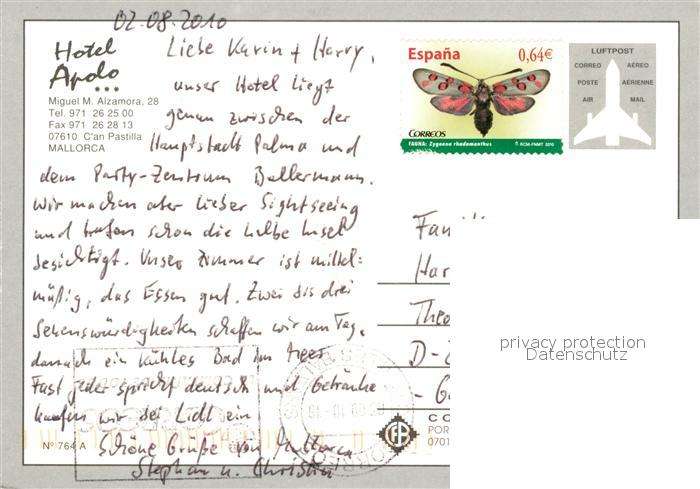 02.08.2010
Hotel
Apolo
Miguel M. Alzamora, 28
Tel. 971 26 25 00
Fax 971 26 28 13
07610 C'an Pastilla
MALLORCA
Liebe Karin + Harry,
unser Hotel liegt
genau zwischen der
Hauptstadt Palma und
dem Party-Zentrum Ballermann.
Wir machen aber lieber Sightseeing
und haben schon die halbe Insel
besichtigt. Unser Zimmer ist mittel=
mäßig, das Essen gut. Zwei bis drei
Sehenswürdigkeiten schaffen wir am Tag,
danach ein kühles Bad im Meer.
Fast jeder spricht deutsch und Getränke
kaufen wir bei Lidl ein
Schöne Grüße von Mallorca
Stephan u. Christin
Nº 764 A
España 0,64€
CORREOS
FAUNA: Zygaena rhadamanthus
© RCM-FNMT 2010
LUFTPOST
CORREO AÉREO
POSTE AÉRIENNE
AIR MAIL
Fam
Har
Theo
D-
privacy protection
Datenschutz
CO
POR
0701